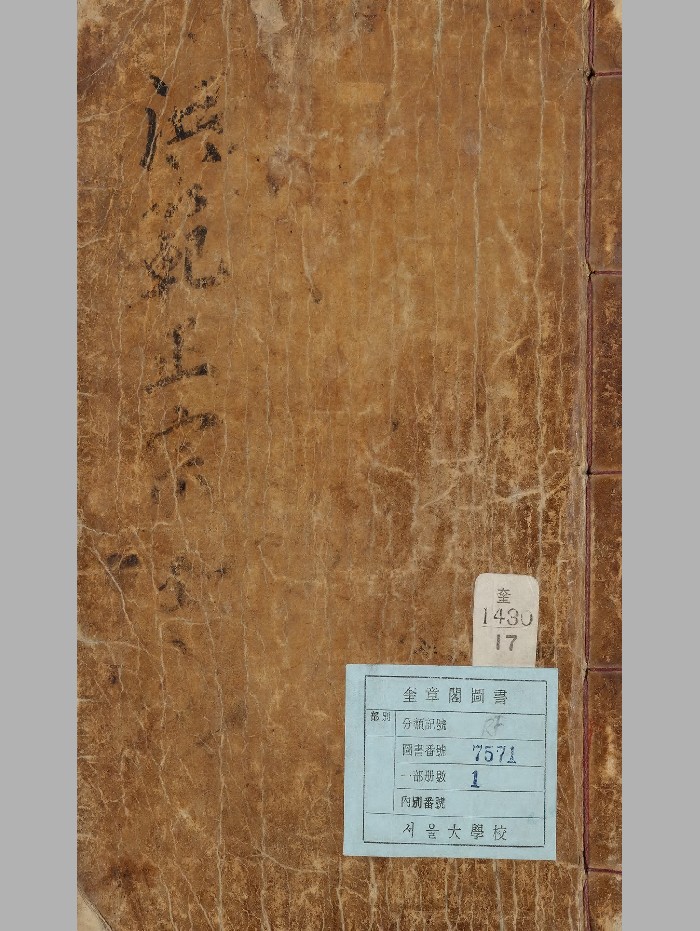 洪範正宗
奎
1430
17
奎章閣圖書
部別
分類記號
圖書番號 7571
一部册數 1
內別番號
서울大學校